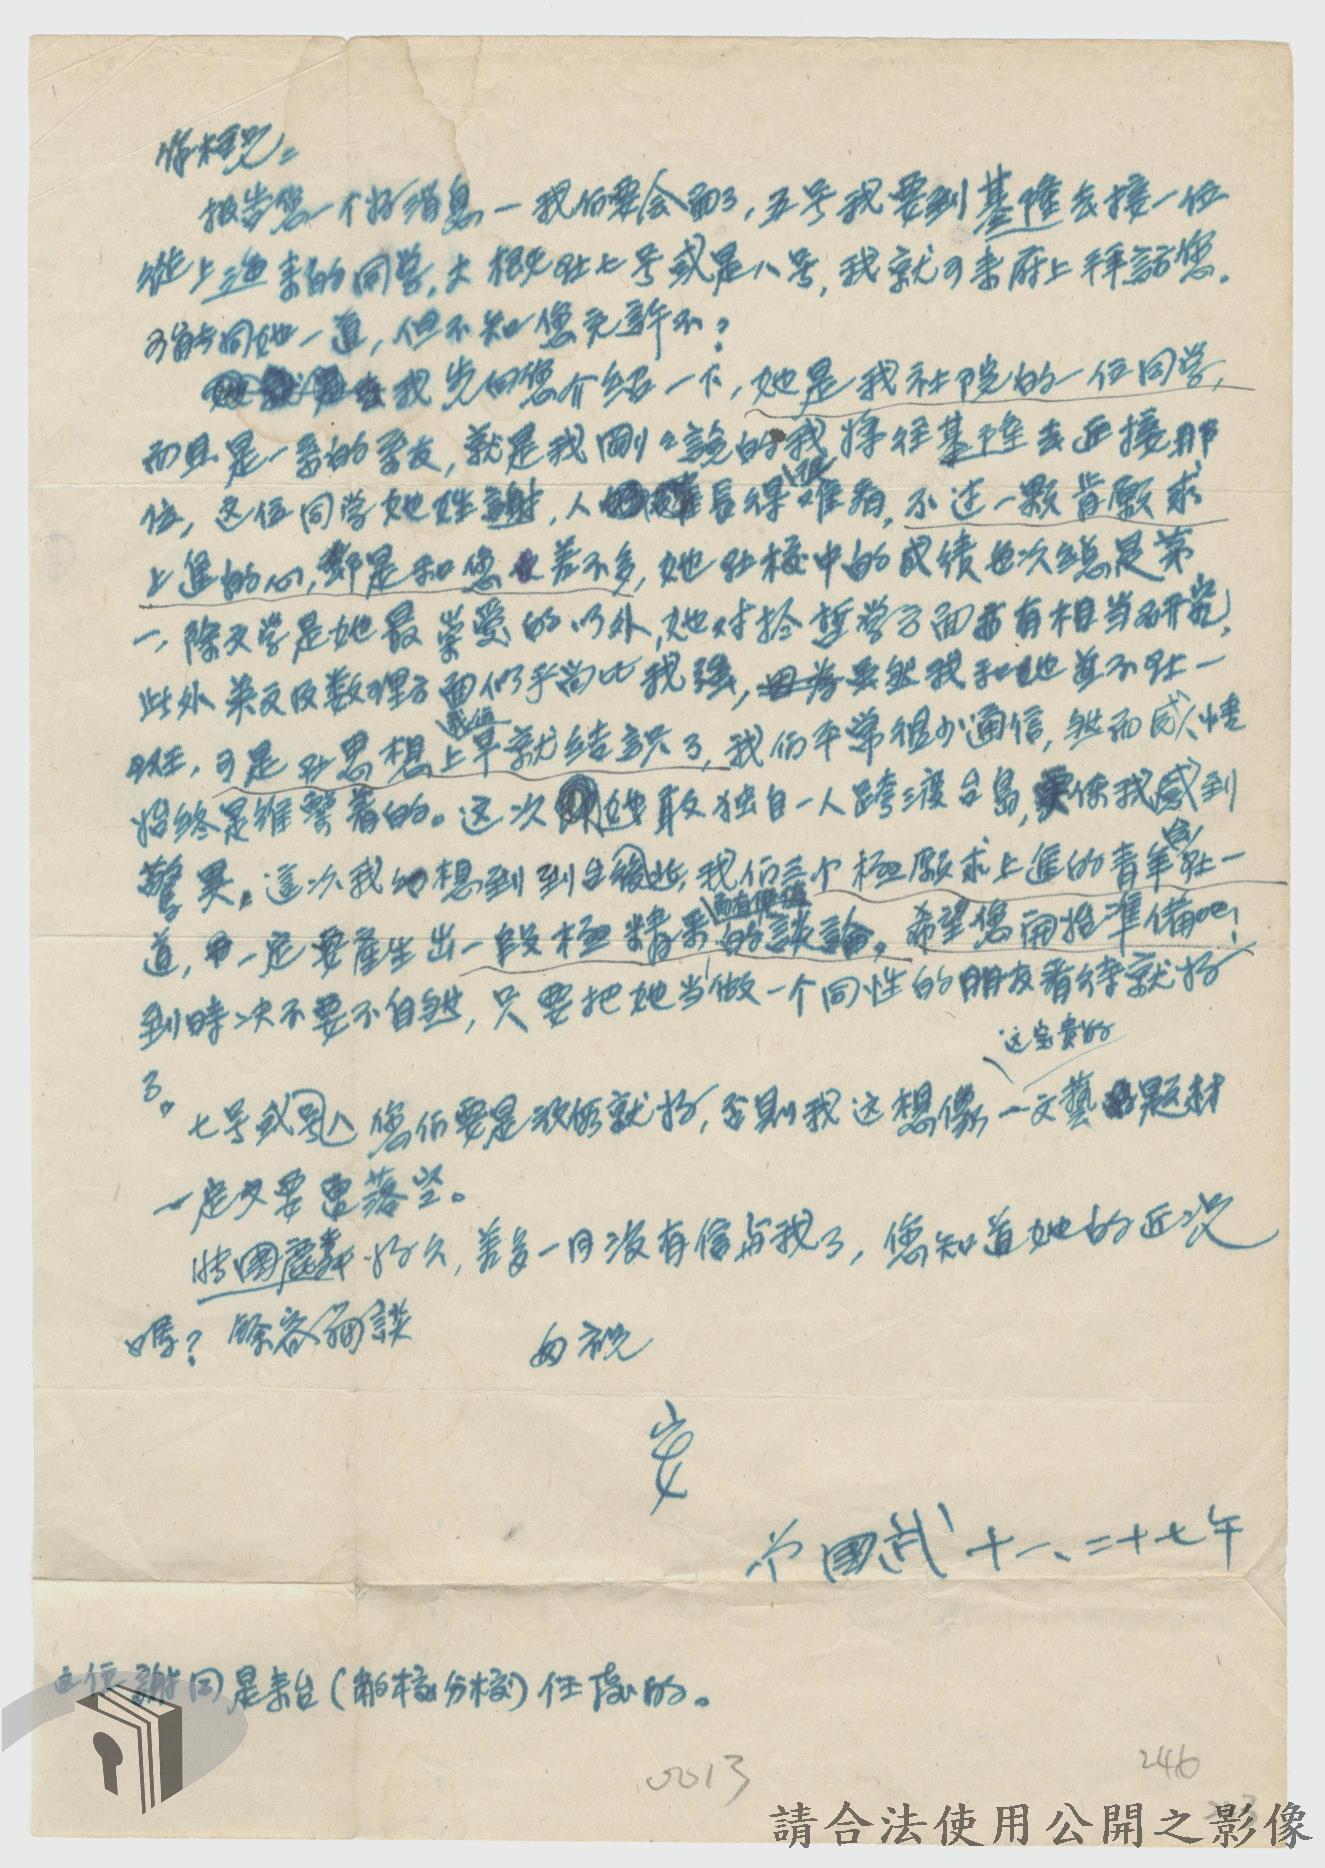 報告您一个好消息一我们要会面了，五号我要到基隆去接一位
從上海來的同学，大概在七号或是八号，我就可来府上拜訪您。
可能同她一道，但不知您允許不？
我先向您介绍一下，她是我社院的一位同学，
而且是一系的系友，就是我剛々說的我将往基隆去迎接那
位，这位同学她姓謝，人長得很难看，不过一颗肯願求
上進的心，都是和您差不多，她在校中的成绩每次總是第
一，除文学是她最崇爱的以外，她对於哲学方面也有相当研究，
此外英文及数理方面似乎尚比我强，虽然我和她並不在一
班，可是在思想上早就结識了，我们平常很少通信，然而感情
始終是维繫着的。这次她敢独自一人跨渡台島，使我感到
驚異。這次我想到到台後，我们三个極願求上進的青年会在一
道，一定要產生出一段極精采而有價值的談論。希望您開始準備吧！
到時决不要不自然，只要把她当做一个同性的朋友看待就好
了。
七号或八号 您们要是放假就好，否則我这想像这宝貴的一文藝題材
一定又要遭落空。
國 好久，差多一月没有信与我了，您知道她的近况
嗎？餘容面談
即祝
安
國武 十一、二十七午
这位謝同是來台（分校）任教的。
0013
246
請合法使用公開之影像